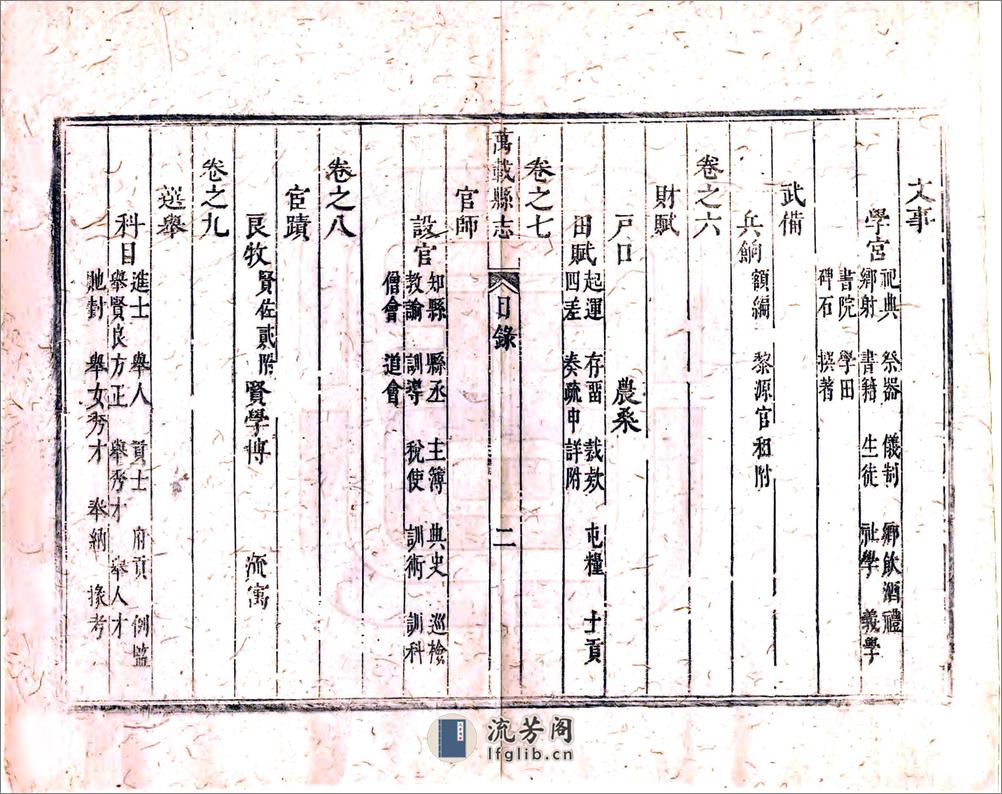 文事
學宮
祀典 祭器 儀制 鄉飲酒禮
鄉射 書籍 生徒 社學 義學
書院 學田
碑石 撰著
武備
兵餉
額編 黎源官租附
卷之六
財賦
戸口 農桒
田賦
起運 存畱 裁欵 屯糧 土貢
四差 奏疏申詳附
卷之七
萬載縣志 目錄 二
官師
設官
知縣 縣丞 主簿 典史 巡檢
教諭 訓導 稅使 訓術 訓科
僧會 道會
卷之八
宦蹟
良牧 賢佐貳附 賢學博 流寓
卷之九
選舉
科目
進士 舉人 貢士 府貢 例監
舉賢良方正 舉秀才 舉人才
馳封 舉女秀才 奉納 掾考
流芳阁
lfglib.cn